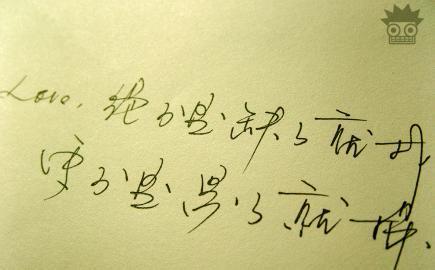 Love,绝不是缺了就找,
更不是累了就换.